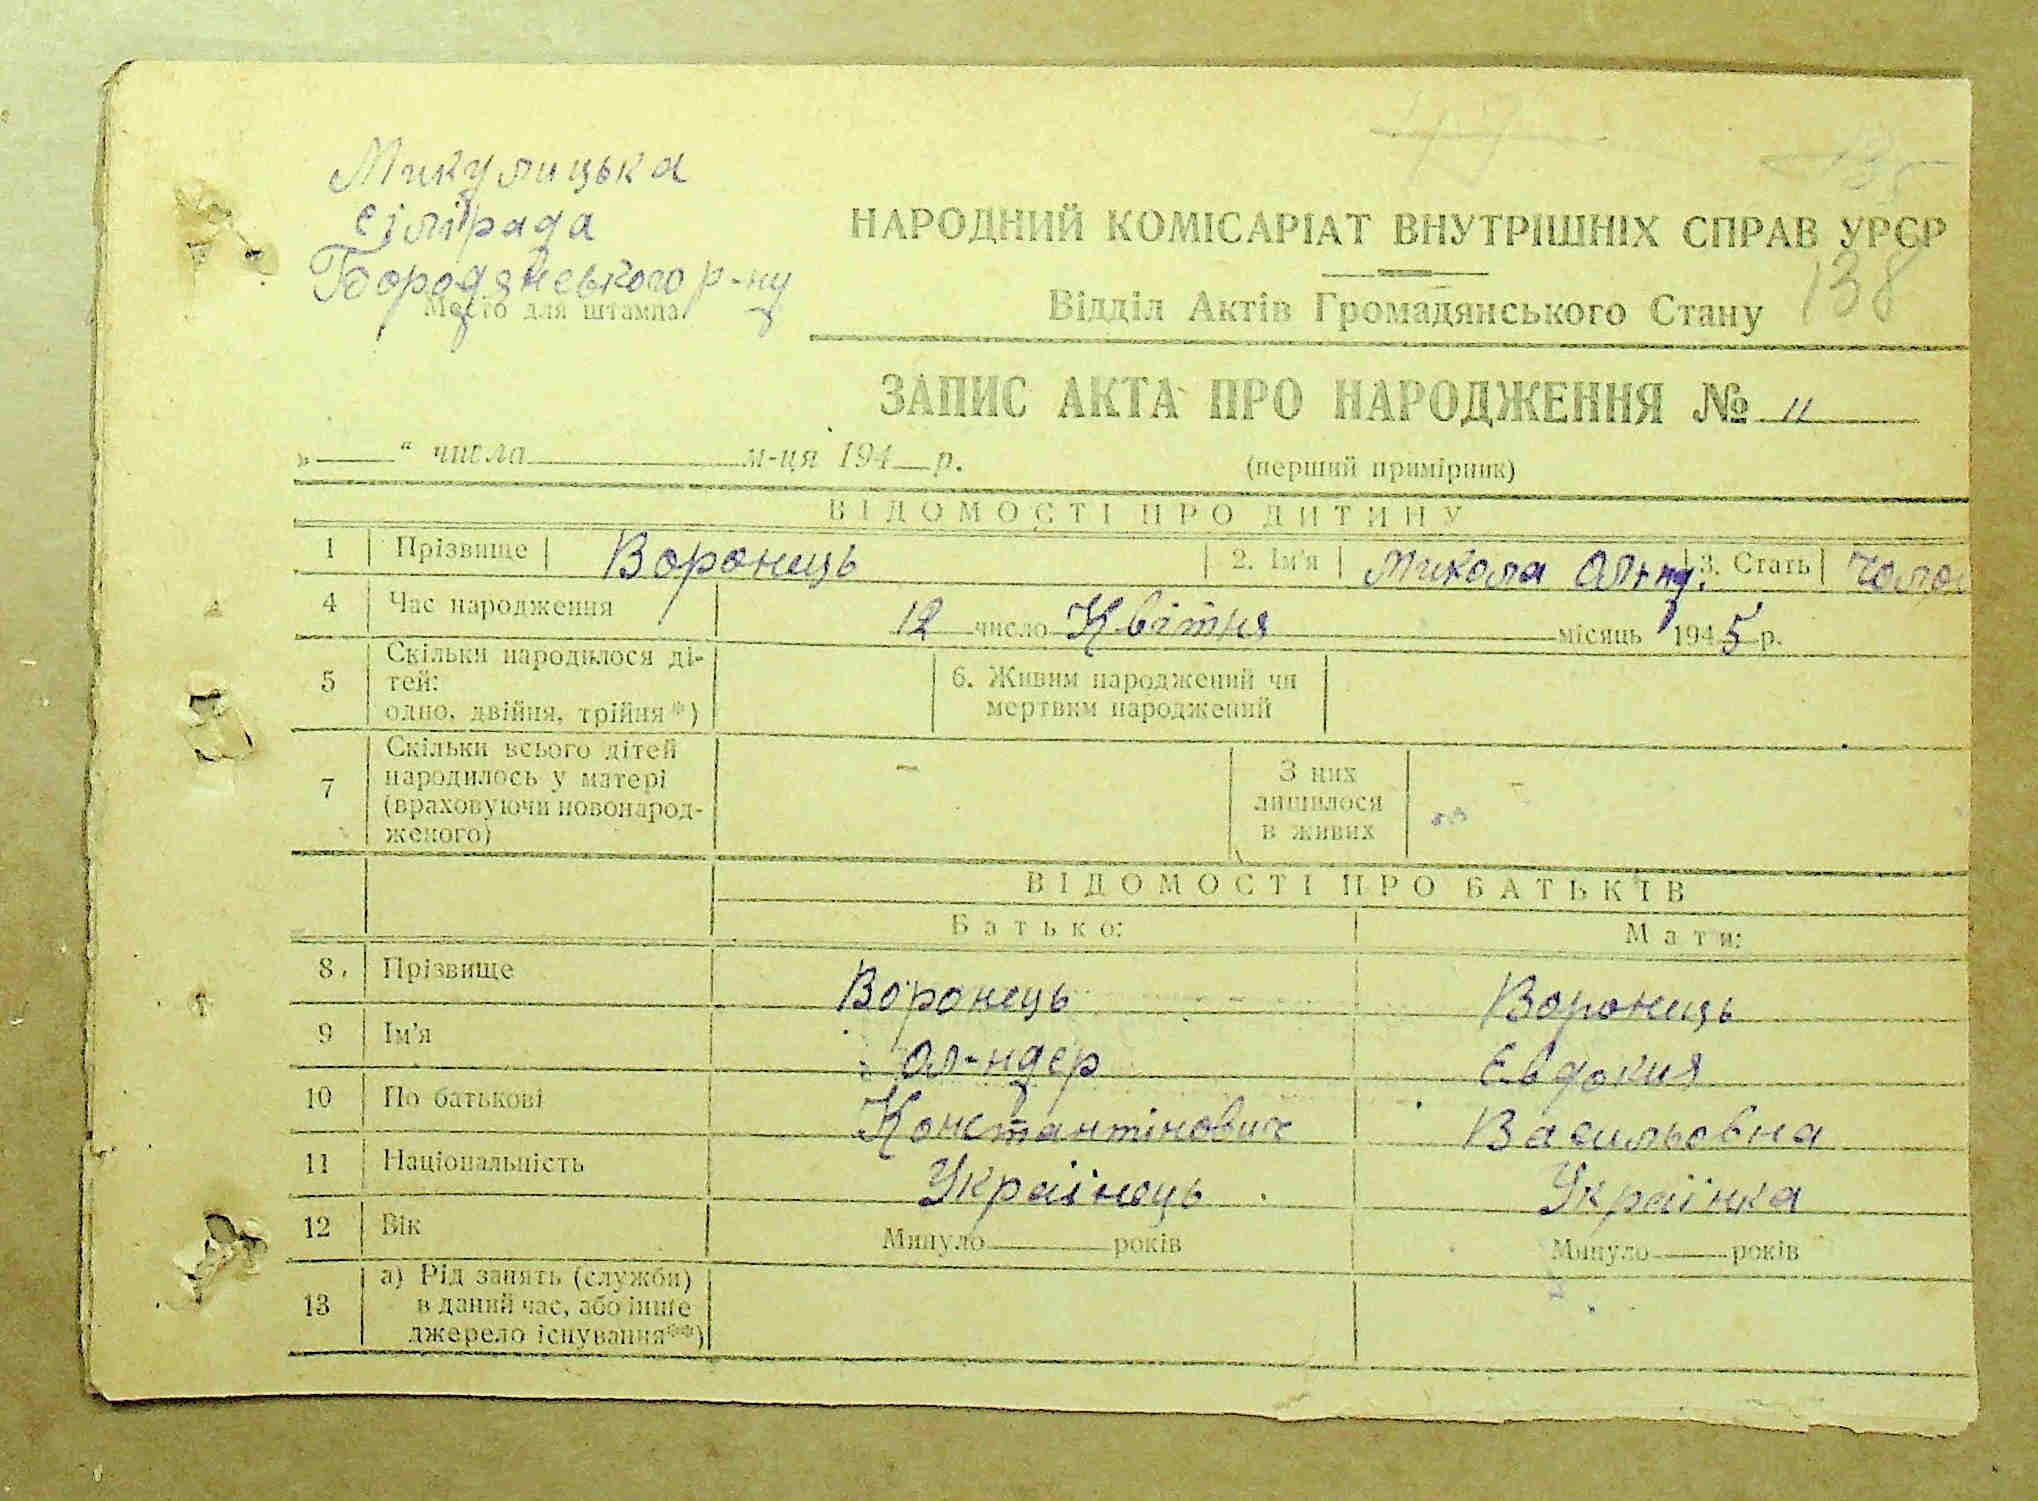 Микулицька
сілрада
Бородянського р-ну
Место для штампа
НАРОДНИЙ КОМІСАРІАТ ВНУТРІШНІХ СПРАВ УРСР
138
Відділ Актів Громадянського Стану
ЗАПИС АКТА ПРО НАРОДЖЕННЯ № 11
„ “ числа м-ця 194 р. (перший примірник)
ВІДОМОСТІ ПРО ДИТИНУ
1 Прізвище Воронець 2. Ім'я Микола 3. Стать Чолов
4 Час народження 12 число Квітня місяць 1945 р.
5 Скільки народилося ді-
тей:
одно, двійня, трійня*)
6. Живим народжений чи
мертвим народжений
7 Скільки всього дітей
народилось у матері
(враховуючи новонарод-
женого)
–
З них
лишилося
в живих
–
ВІДОМОСТІ ПРО БАТЬКІВ
Батько: Мати:
8. Прізвище Воронець Воронець
9 Ім'я Ол-ндер Євдокия
10 По батькові Константінович Васильовна
11 Національність Українець Українка
12 Вік Минуло років Минуло років
13 а) Рід занять (служби)
в даний час, або інше
джерело існування**)